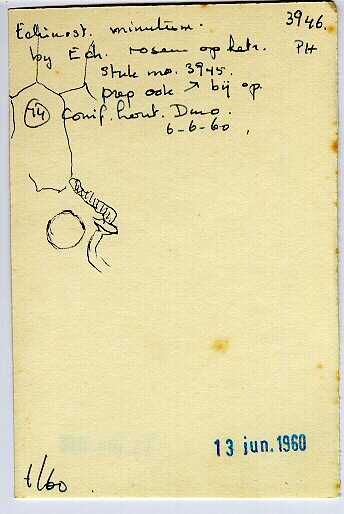 Echinost. minutum. 3946.
by Ech. roseum op hetz. PH
stuk no. 3945.
prep ook ↗ bij op.
44 Conif. hout. Dmo.
6-6-60,
13 jun. 1960
1/60.